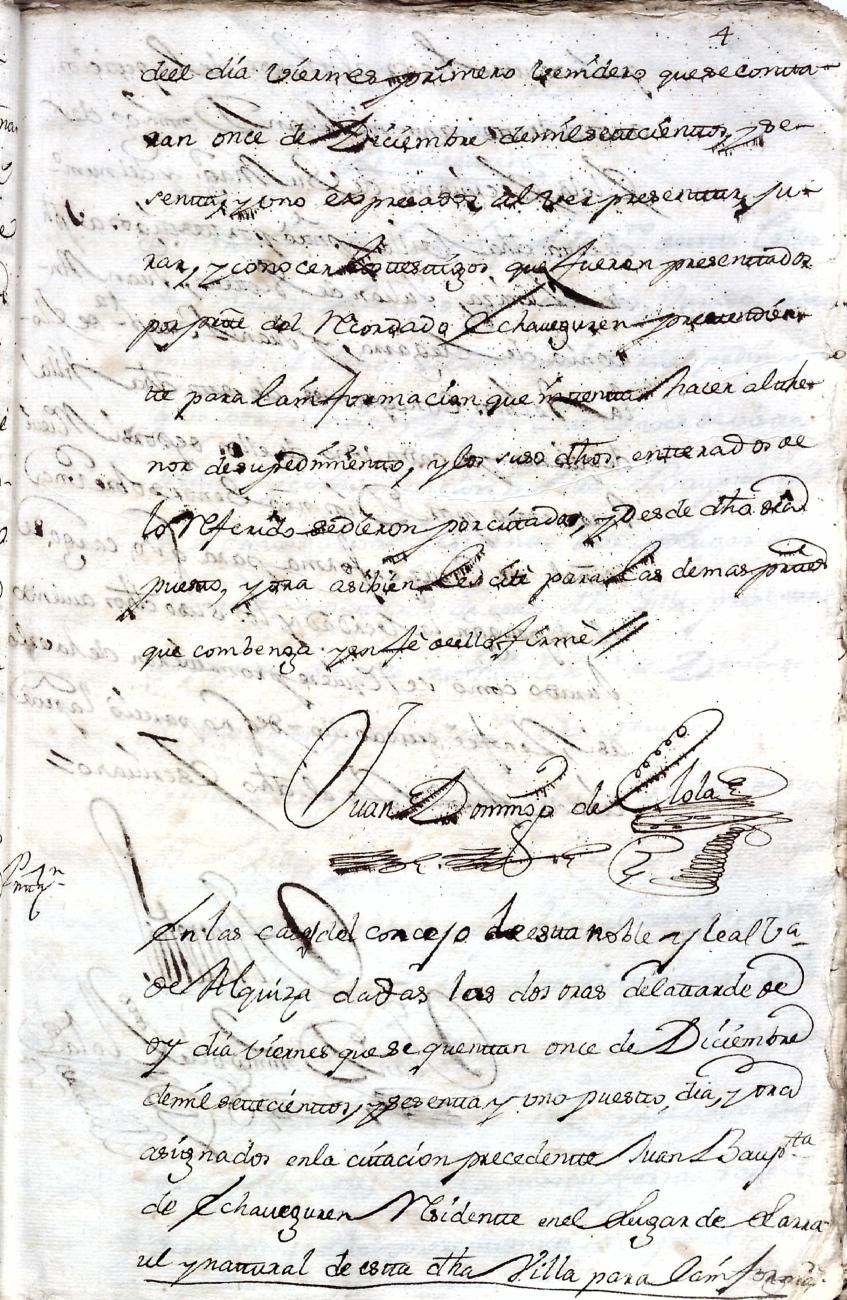 4
deel dia Viernes primero Venidero que se conta-
ran once de Diciembre demil setecientos, y se-
senta, y uno expresados al ver presentar, ju-
rar, y conocer los testigos que fueren presentados
por parte del Recordado Echaveguren pretendien-
te para la informacion que intenta hacer al the-
nor desu pedimiento, y los suso dhos. enterados de
lo Referido sedieron por citados, y Desde dho. dia
puesto, y ora asibien les cite para las demas
que combenga y enfè de ello firmè //
Juan Domingo de Elola
En las casas del concejo de esta noble y leal Va.
de Alquiza dadas las dos oras dela tarde de
oy dia Viernes que se quentan once de Diciembre
demil setecientos, y sesenta y uno puesto, dia, y ora
asignados enla citacion precedente Juan Bauptta
de Echaveguren Residente enel Lugar de Larra-
ul y natural de esta dha Villa para la informn.